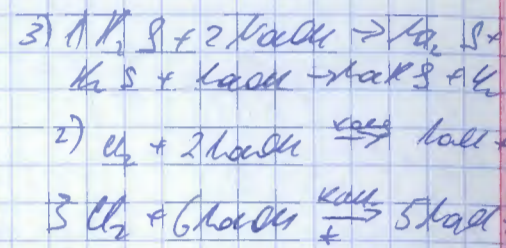 3) 1) H₂S + 2NaOH → Na₂S +
H₂S + NaOH → NaHS + H₂
2) Cl₂ + 2NaOH → NaCl +
3Cl₂ + 6NaOH → 5NaCl